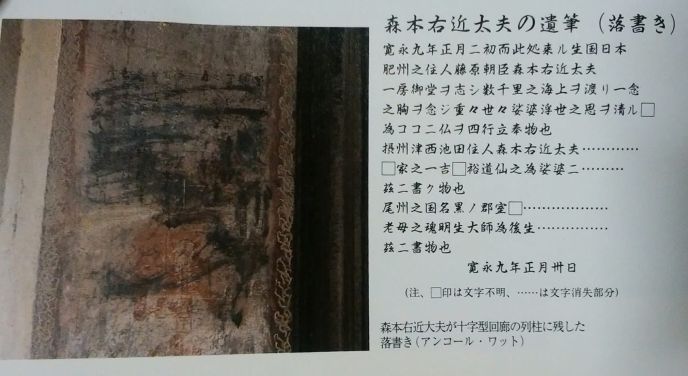 森本右近太夫の遺筆（落書き）
寛永九年正月ニ初而此処来ル生国日本
肥州之住人藤原朝臣森本右近太夫
一房御堂ヲ志シ数千里之海上ヲ渡リ一念
之胸ヲ念ジ重々世々娑婆浮世之思ヲ清ル□
為ココニ仏ヲ四行立奉物也
摂州津西池田住人森本右近太夫…………
□家之一吉□裕道仙之為娑婆ニ………
茲ニ書ク物也
尾州之国名黒ノ郡室□………………
老母之魂明生大師為後生……………
茲ニ書物也
寛永九年正月卅日
（注、□印は文字不明、……は文字消失部分）
森本右近大夫が十字型回廊の列柱に残した
落書き（アンコール・ワット）